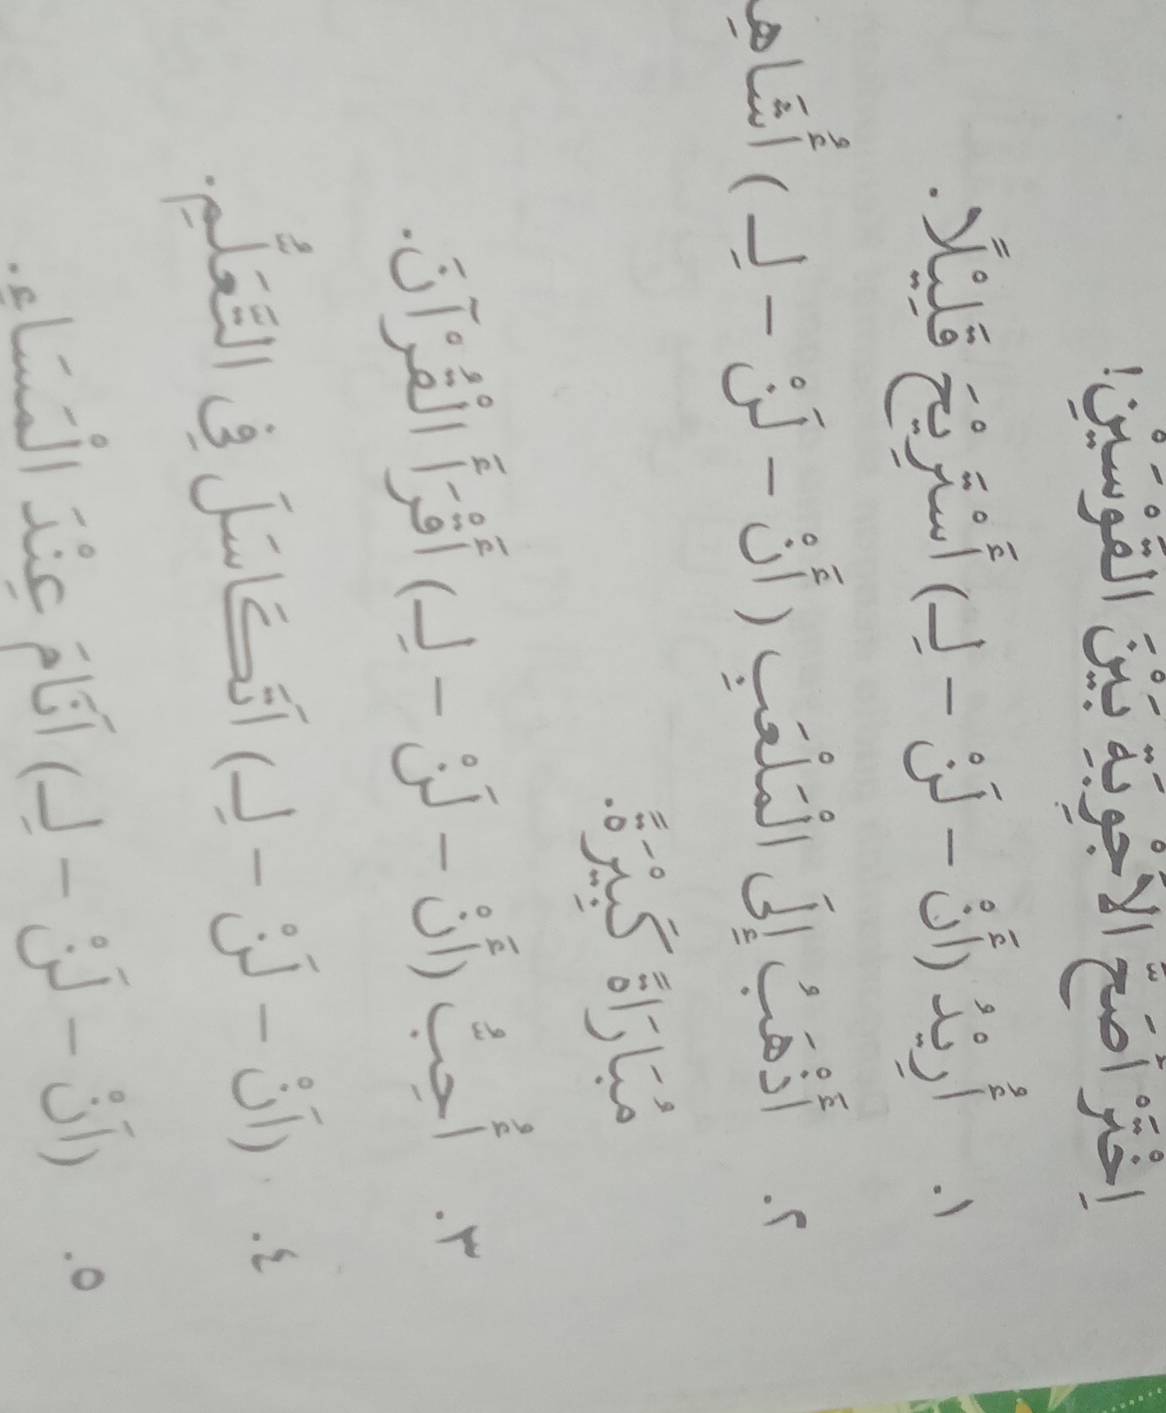 اِخْتَرْ أَصَحَّ الْأَجْوِبَةِ بَيْنَ الْقَوْسَيْنِ!
١. أُرِيْدُ (أَنْ - لَنْ - لِـ) أَسْتَرِيْحَ قَلِيْلًا.
٢. أَذْهَبُ إِلَى الْمَلْعَبِ (أَنْ - لَنْ - لِـ) أُشَاهِ
مُبَارَاةً كَبِيْرَةً.
٣. أُحِبُّ (أَنْ - لَنْ - لِـ) أَقْرَأَ الْقُرْآنَ.
٤. (أَنْ - لَنْ - لِـ) أَتَكَاسَلَ فِي التَّعَلُّمِ.
٥. (أَنْ - لَنْ - لِـ) أَنَامَ عِنْدَ الْمَسَاءِ.